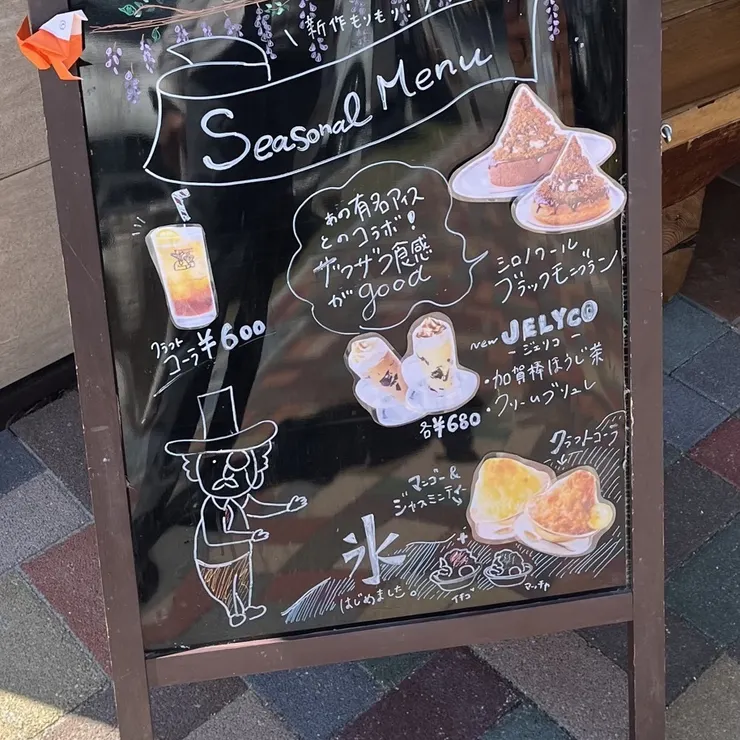 新作もりもり!
Seasonal Menu
あの有名アイス
とのコラボ!
ザクザク食感
がgood
シロノワール
ブラックモンブラン
クラフト
コーラ ¥600
new JELYCO
-ジェリコ-
・加賀棒ほうじ茶
・クリームブリュレ
各¥680
クラフトコーラ
マンゴー&
ジャスミンティー
+
氷
はじめました。
イチゴ
マッチャ